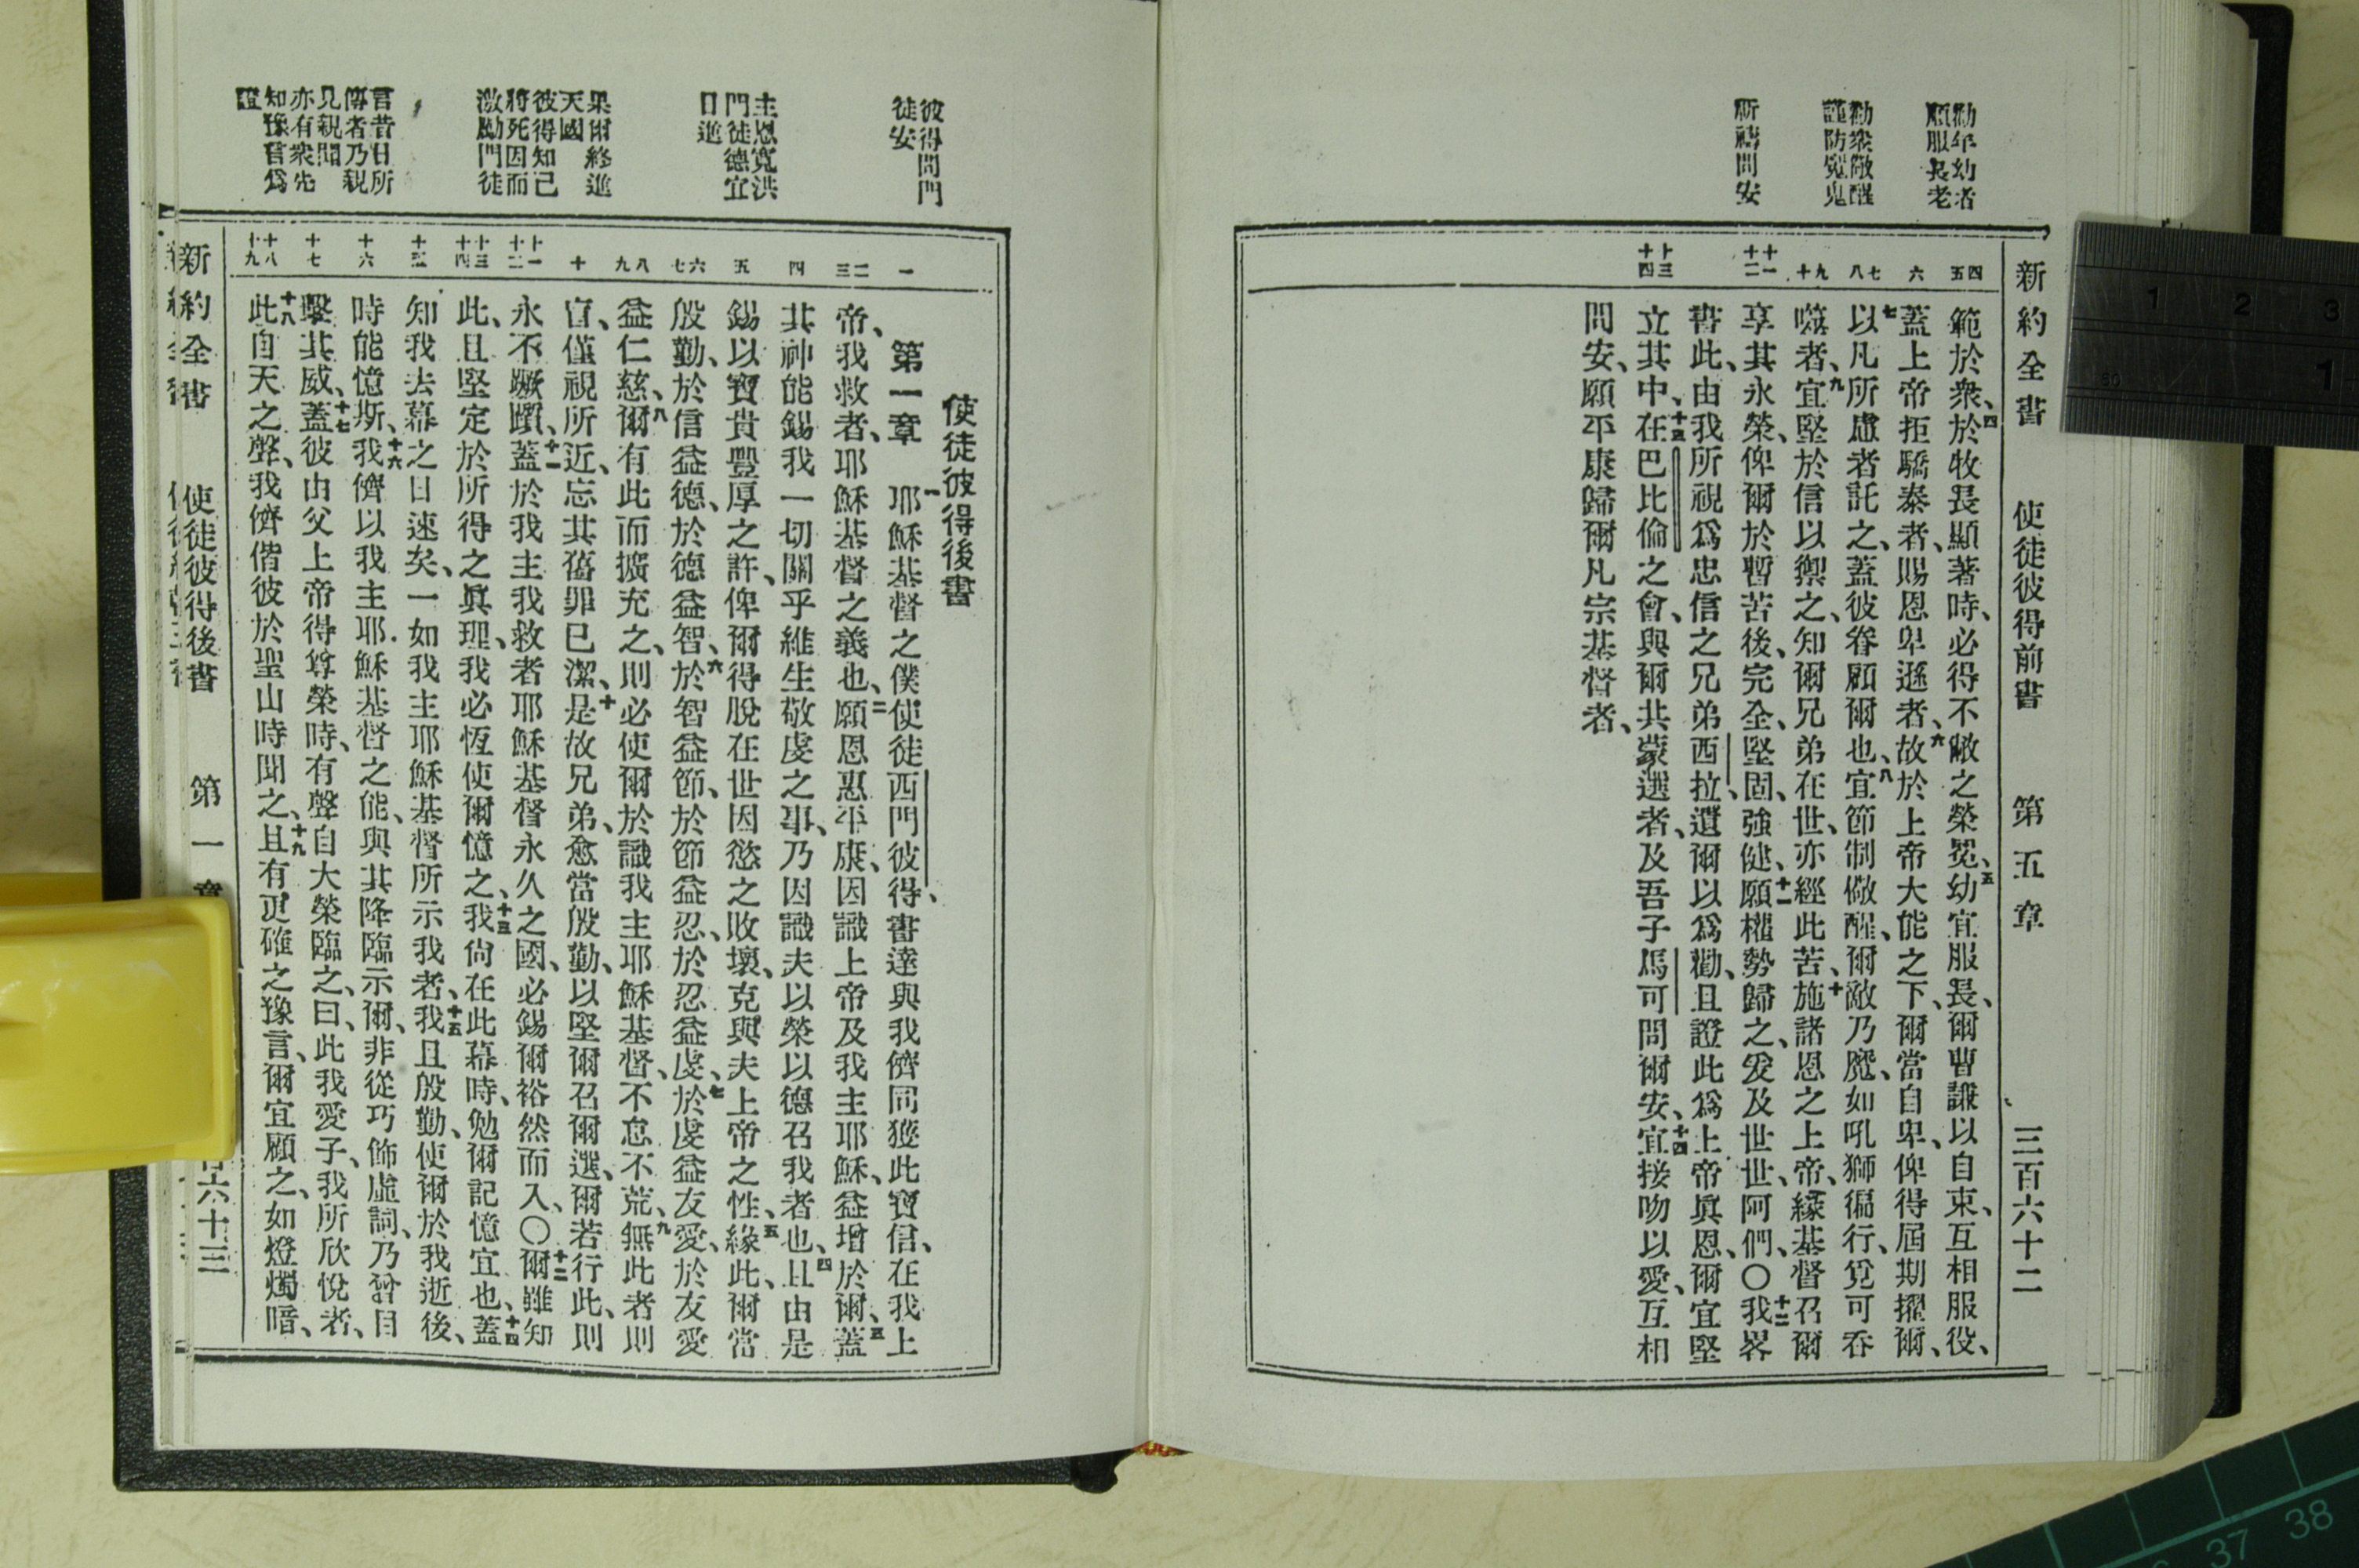 勸年幼者
順服長老
勸衆儆醒
謹防魔鬼
祈禱問安
新約全書 使徒彼得前書 第五章 三百六十二
四 五
六
七 八
九 十
十一 十二
十三 十四
範於衆、四於牧長顯著時、必得不敝之榮冕、五幼宜服長、爾曹謙以自束、互相服役、
蓋上帝拒驕泰者、賜恩卑遜者、六故於上帝大能之下、爾當自卑、俾得屆期擢爾、
七以凡所慮者託之、蓋彼眷顧爾也、八宜節制儆醒、爾敵乃魔、如吼獅徧行、覓可吞
噬者、九宜堅於信以禦之、知爾兄弟在世、亦經此苦、十施諸恩之上帝、緣基督召爾
享其永榮、俾爾於暫苦後、完全、堅固、強健、十一願權勢歸之、爰及世世、阿們、〇十二我畧
書此、由我所視爲忠信之兄弟西拉、遺爾以爲勸、且證此爲上帝眞恩、爾宜堅
立其中、十三在巴比倫之會、與爾共蒙選者、及吾子馬可問爾安、十四宜接吻以愛、互相
問安、願平康歸爾凡宗基督者、
彼得問門
徒安
主恩寬洪
門徒德宜
日進
果爾終進
天國
彼得知己
將死因而
激勵門徒
言昔日所
傳者乃親
見親聞
亦有衆先
知豫言爲
證
一
二 三
四
五
六 七
八 九
十
十一 十二
十三 十四
十五
十六
十七
十八 十九
使徒彼得後書
第一章 一耶穌基督之僕使徒西門彼得、書達與我儕同獲此寶信、在我上
帝、我救者、耶穌基督之義也、二願恩惠平康、因識上帝及我主耶穌、益增於爾、三蓋
其神能錫我一切關乎維生敬虔之事、乃因識夫以榮以德召我者也、四且由是
錫以寶貴豐厚之許、俾爾得脫在世因慾之敗壞、克與夫上帝之性、五緣此、爾當
殷勤、於信益德、於德益智、六於智益節、於節益忍、於忍益虔、七於虔益友愛、於友愛
益仁慈、八爾有此而擴充之、則必使爾於識我主耶穌基督、不怠不荒、九無此者則
盲、僅視所近、忘其舊罪已潔、十是故兄弟、愈當殷勤、以堅爾召爾選、爾若行此、則
永不蹶躓、十一蓋於我主我救者耶穌基督永久之國、必錫爾裕然而入、〇十二爾雖知
此、且堅定於所得之眞理、我必恆使爾憶之、十三我尙在此幕時、勉爾記憶宜也、十四蓋
知我去幕之日速矣、一如我主耶穌基督所示我者、十五我且殷勤、使爾於我逝後、
時能憶斯、十六我儕以我主耶穌基督之能、與其降臨示爾、非從巧飾虛詞、乃曾目
擊其威、十七蓋彼由父上帝得尊榮時、有聲自大榮臨之、曰、此我愛子、我所欣悅者、
十八此自天之聲、我儕偕彼於聖山時聞之、十九且有更確之豫言、爾宜顧之、如燈燭暗、
新約全書 使徒彼得後書 第一章 百六十三